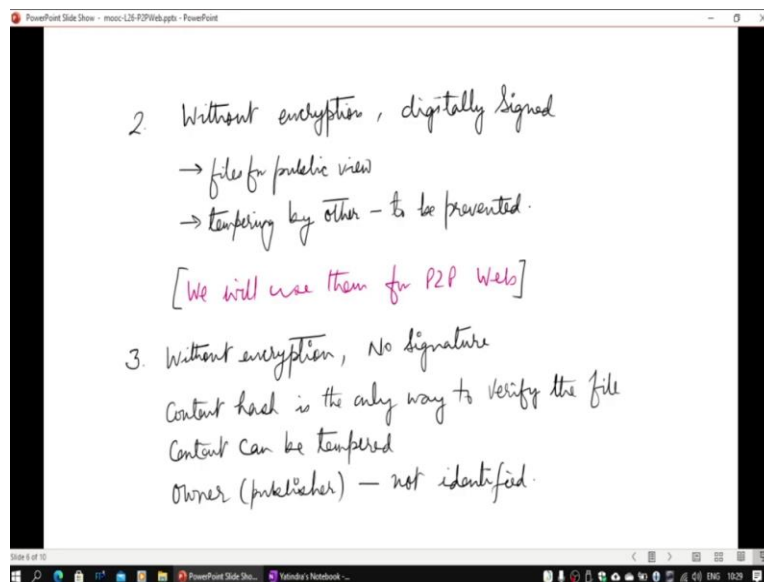 PowerPoint Slide Show - mooc-L26-P2PWeb.pptx - PowerPoint
2. Without encryption, digitally signed
→ files for public view
→ tempering by other - to be prevented.
[We will use them for P2P Web]
3. Without encryption, No Signature
Content hash is the only way to verify the file
Content can be tempered
Owner (publisher) - not identified.
Slide 6 of 10
PowerPoint Slide Sho... Yatindra's Notebook -... ENG 1029